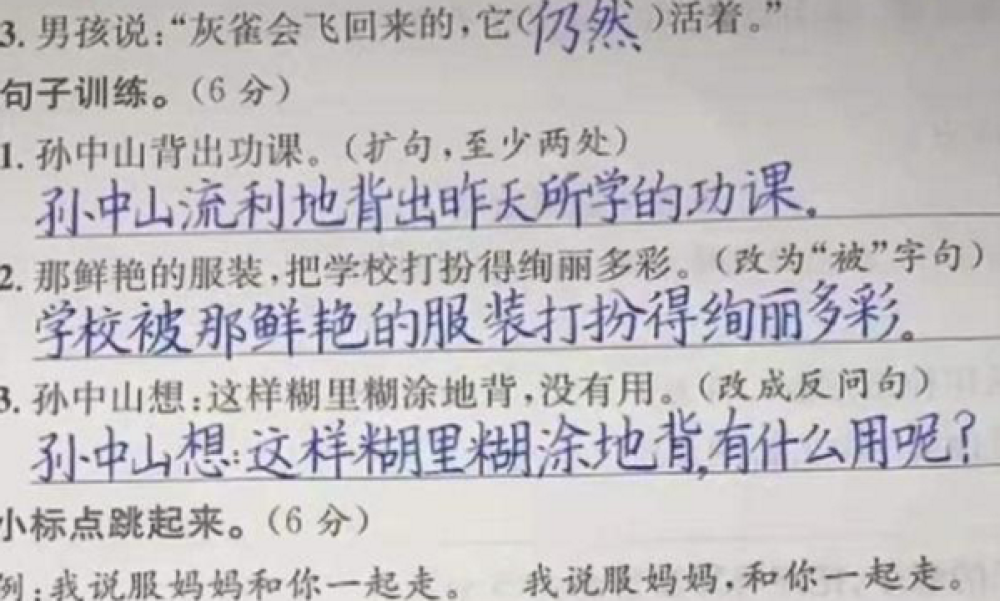 3. 男孩说：“灰雀会飞回来的，它(仍然)活着。”
句子训练。（6 分）
1. 孙中山背出功课。（扩句，至少两处）
孙中山流利地背出昨天所学的功课。
2. 那鲜艳的服装，把学校打扮得绚丽多彩。（改为“被”字句）
学校被那鲜艳的服装打扮得绚丽多彩。
3. 孙中山想：这样糊里糊涂地背，没有用。（改成反问句）
孙中山想：这样糊里糊涂地背，有什么用呢？
小标点跳起来。（6 分）
例：我说服妈妈和你一起走。 我说服妈妈，和你一起走。